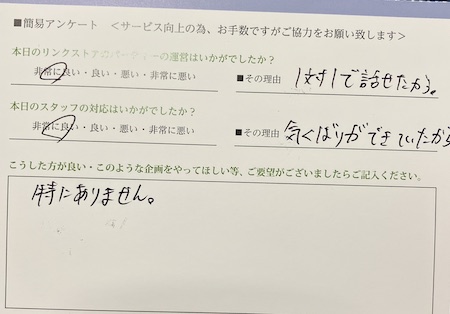 ■簡易アンケート ＜サービス向上の為、お手数ですがご協力をお願い致します＞
本日のリンクストアカバーティーの運営はいかがでしたか？
非常に良い・良い・悪い・非常に悪い ■その理由 1対1で話せたから。
本日のスタッフの対応はいかがでしたか？
非常に良い・良い・悪い・非常に悪い ■その理由 気くばりができていたから
こうした方が良い・このような企画をやってほしい等、ご要望がございましたらご記入ください。
特にありません。